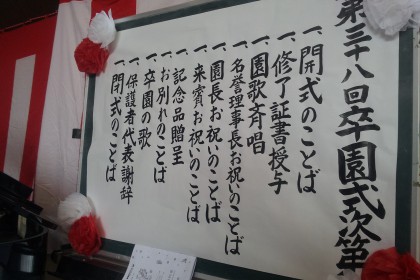 第三十八回卒園式次第
一、開式のことば
一、修了証書授与
一、園歌斉唱
一、名誉理事長お祝いのことば
一、園長お祝いのことば
一、来賓お祝いのことば
一、記念品贈呈
一、お別れのことば
一、卒園の歌
一、保護者代表謝辞
一、閉式のことば